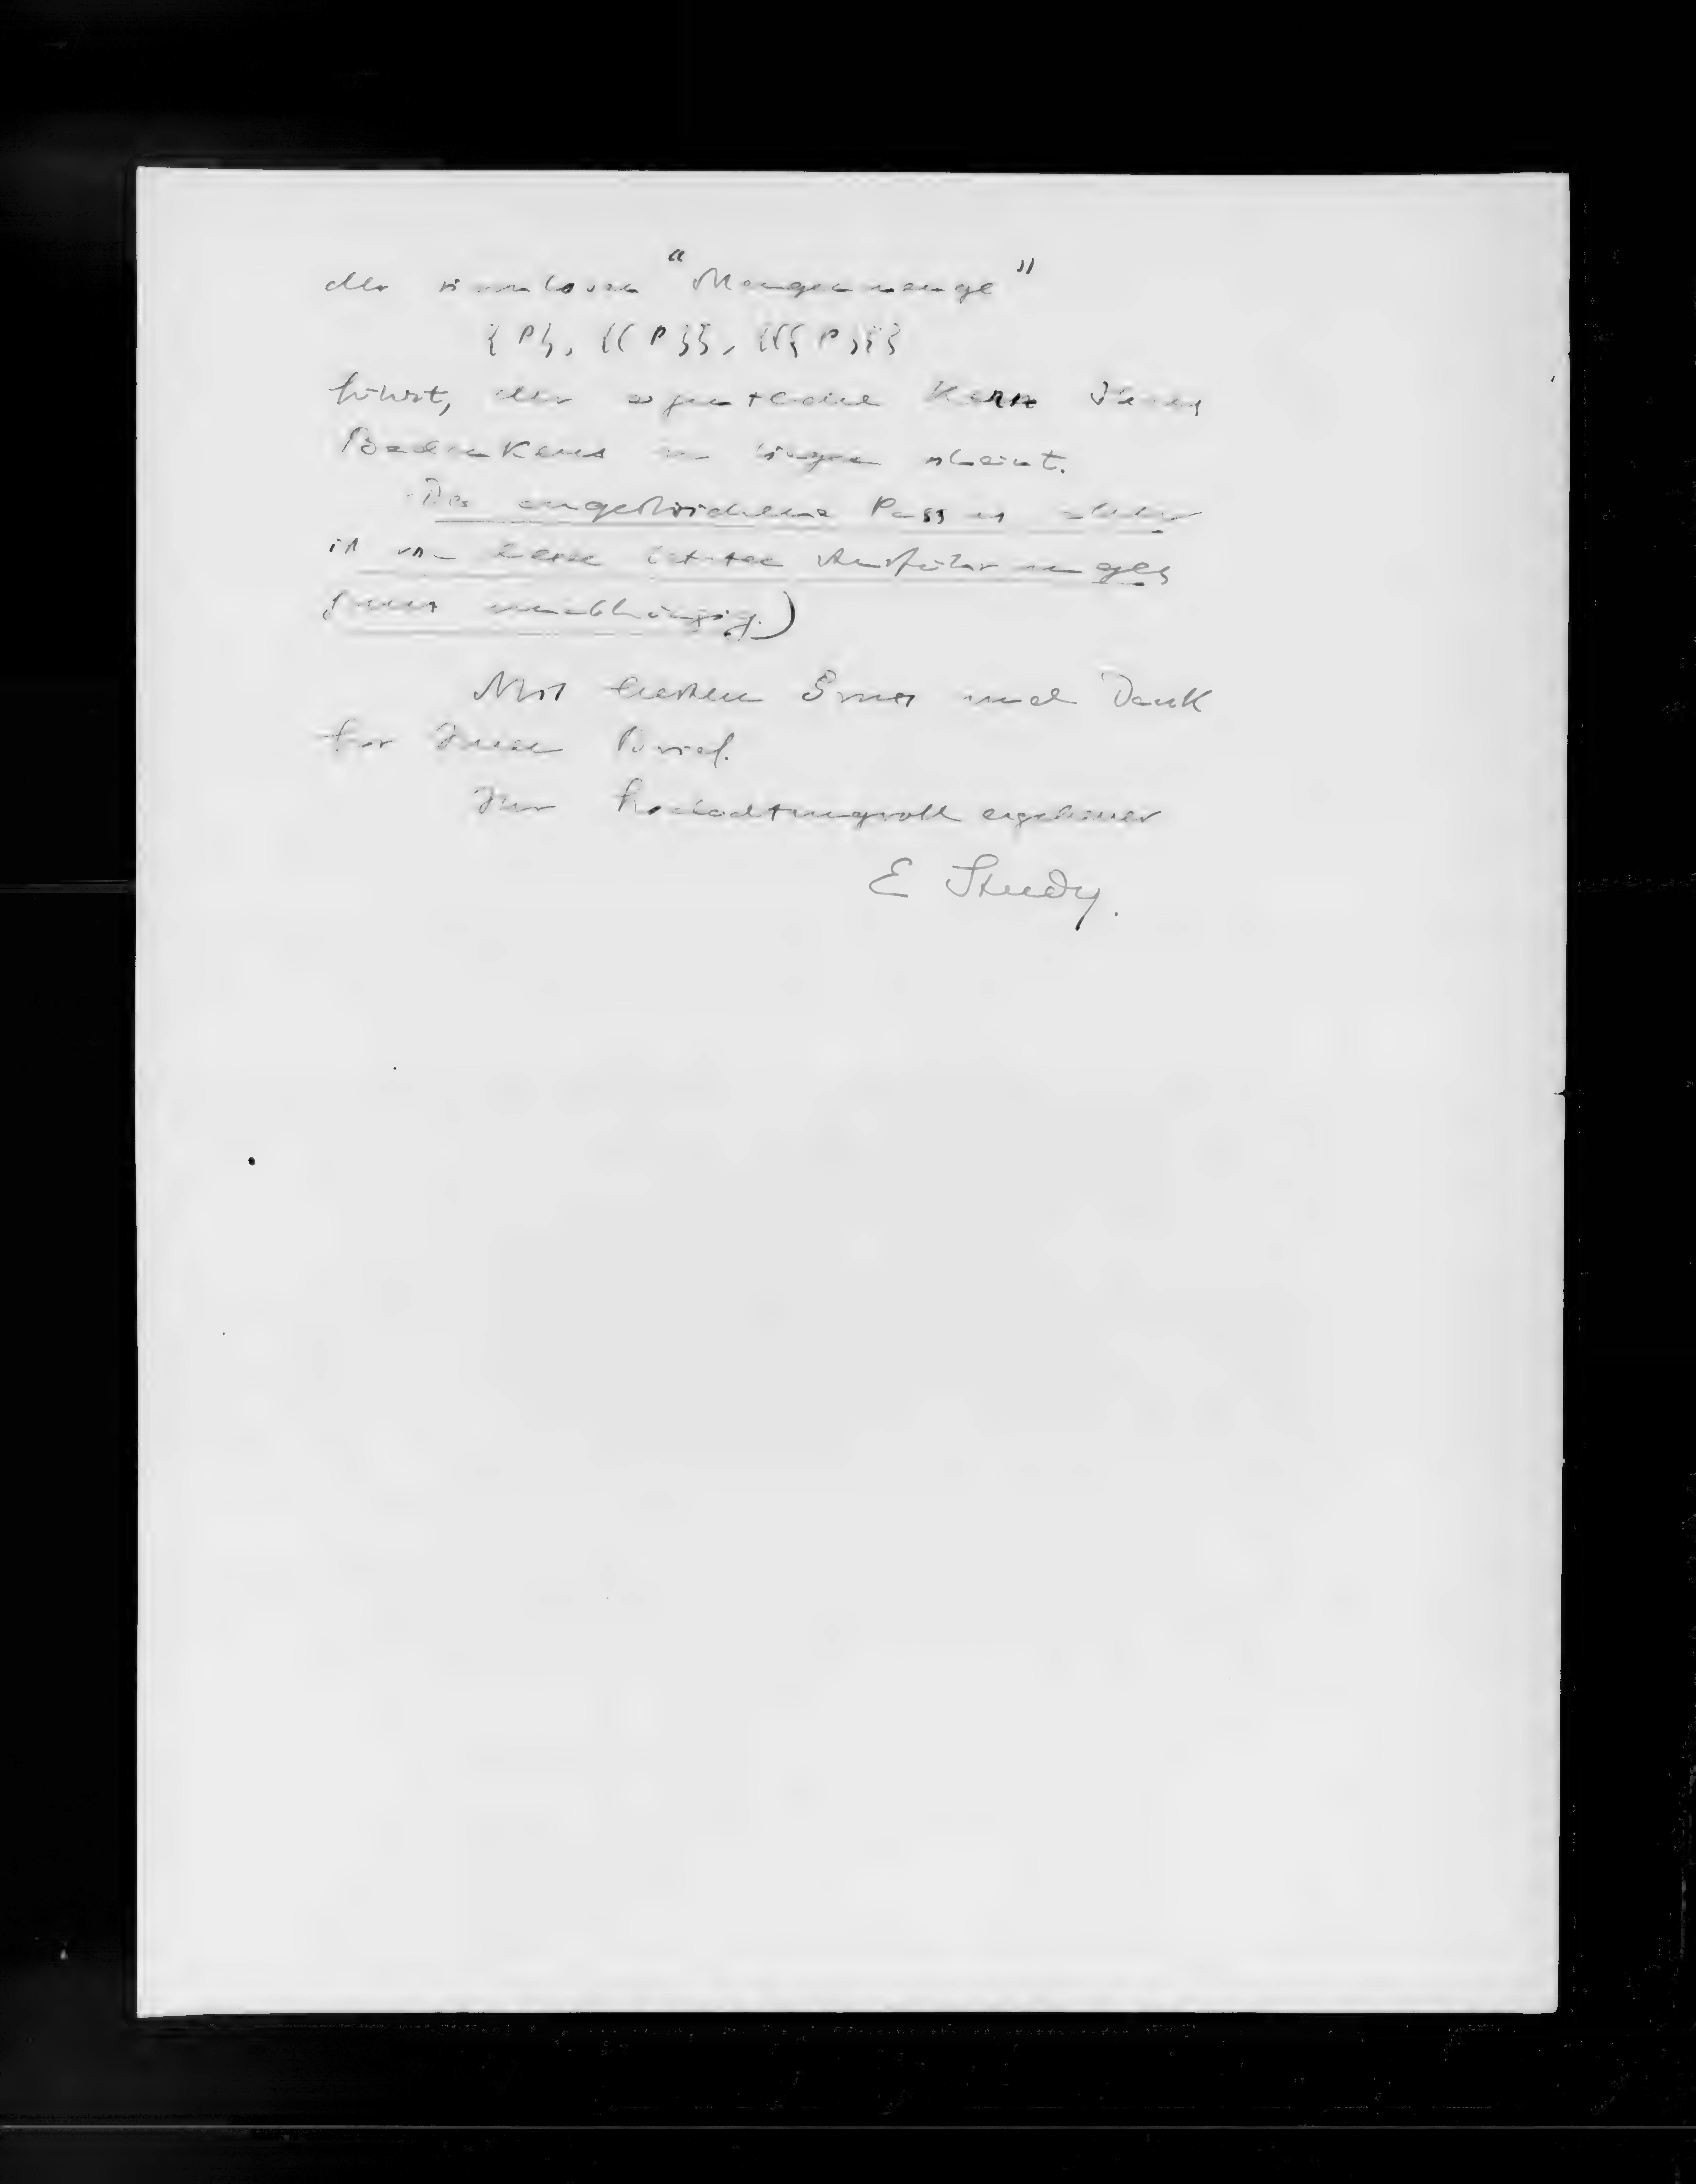 der sinnlosen “Mengenmenge”
{P}, {{P}}, {{{P}}}
führt, der eigentliche Kern Ihres
Bedenkens zu liegen scheint.
Der angestrichene Passus aber
ist von diesen letzten Ausführungen
ganz unabhängig.)
Mit bestem Gruss und Dank
für Ihren Brief.
Ihr hochachtungsvoll ergebener
E Study.